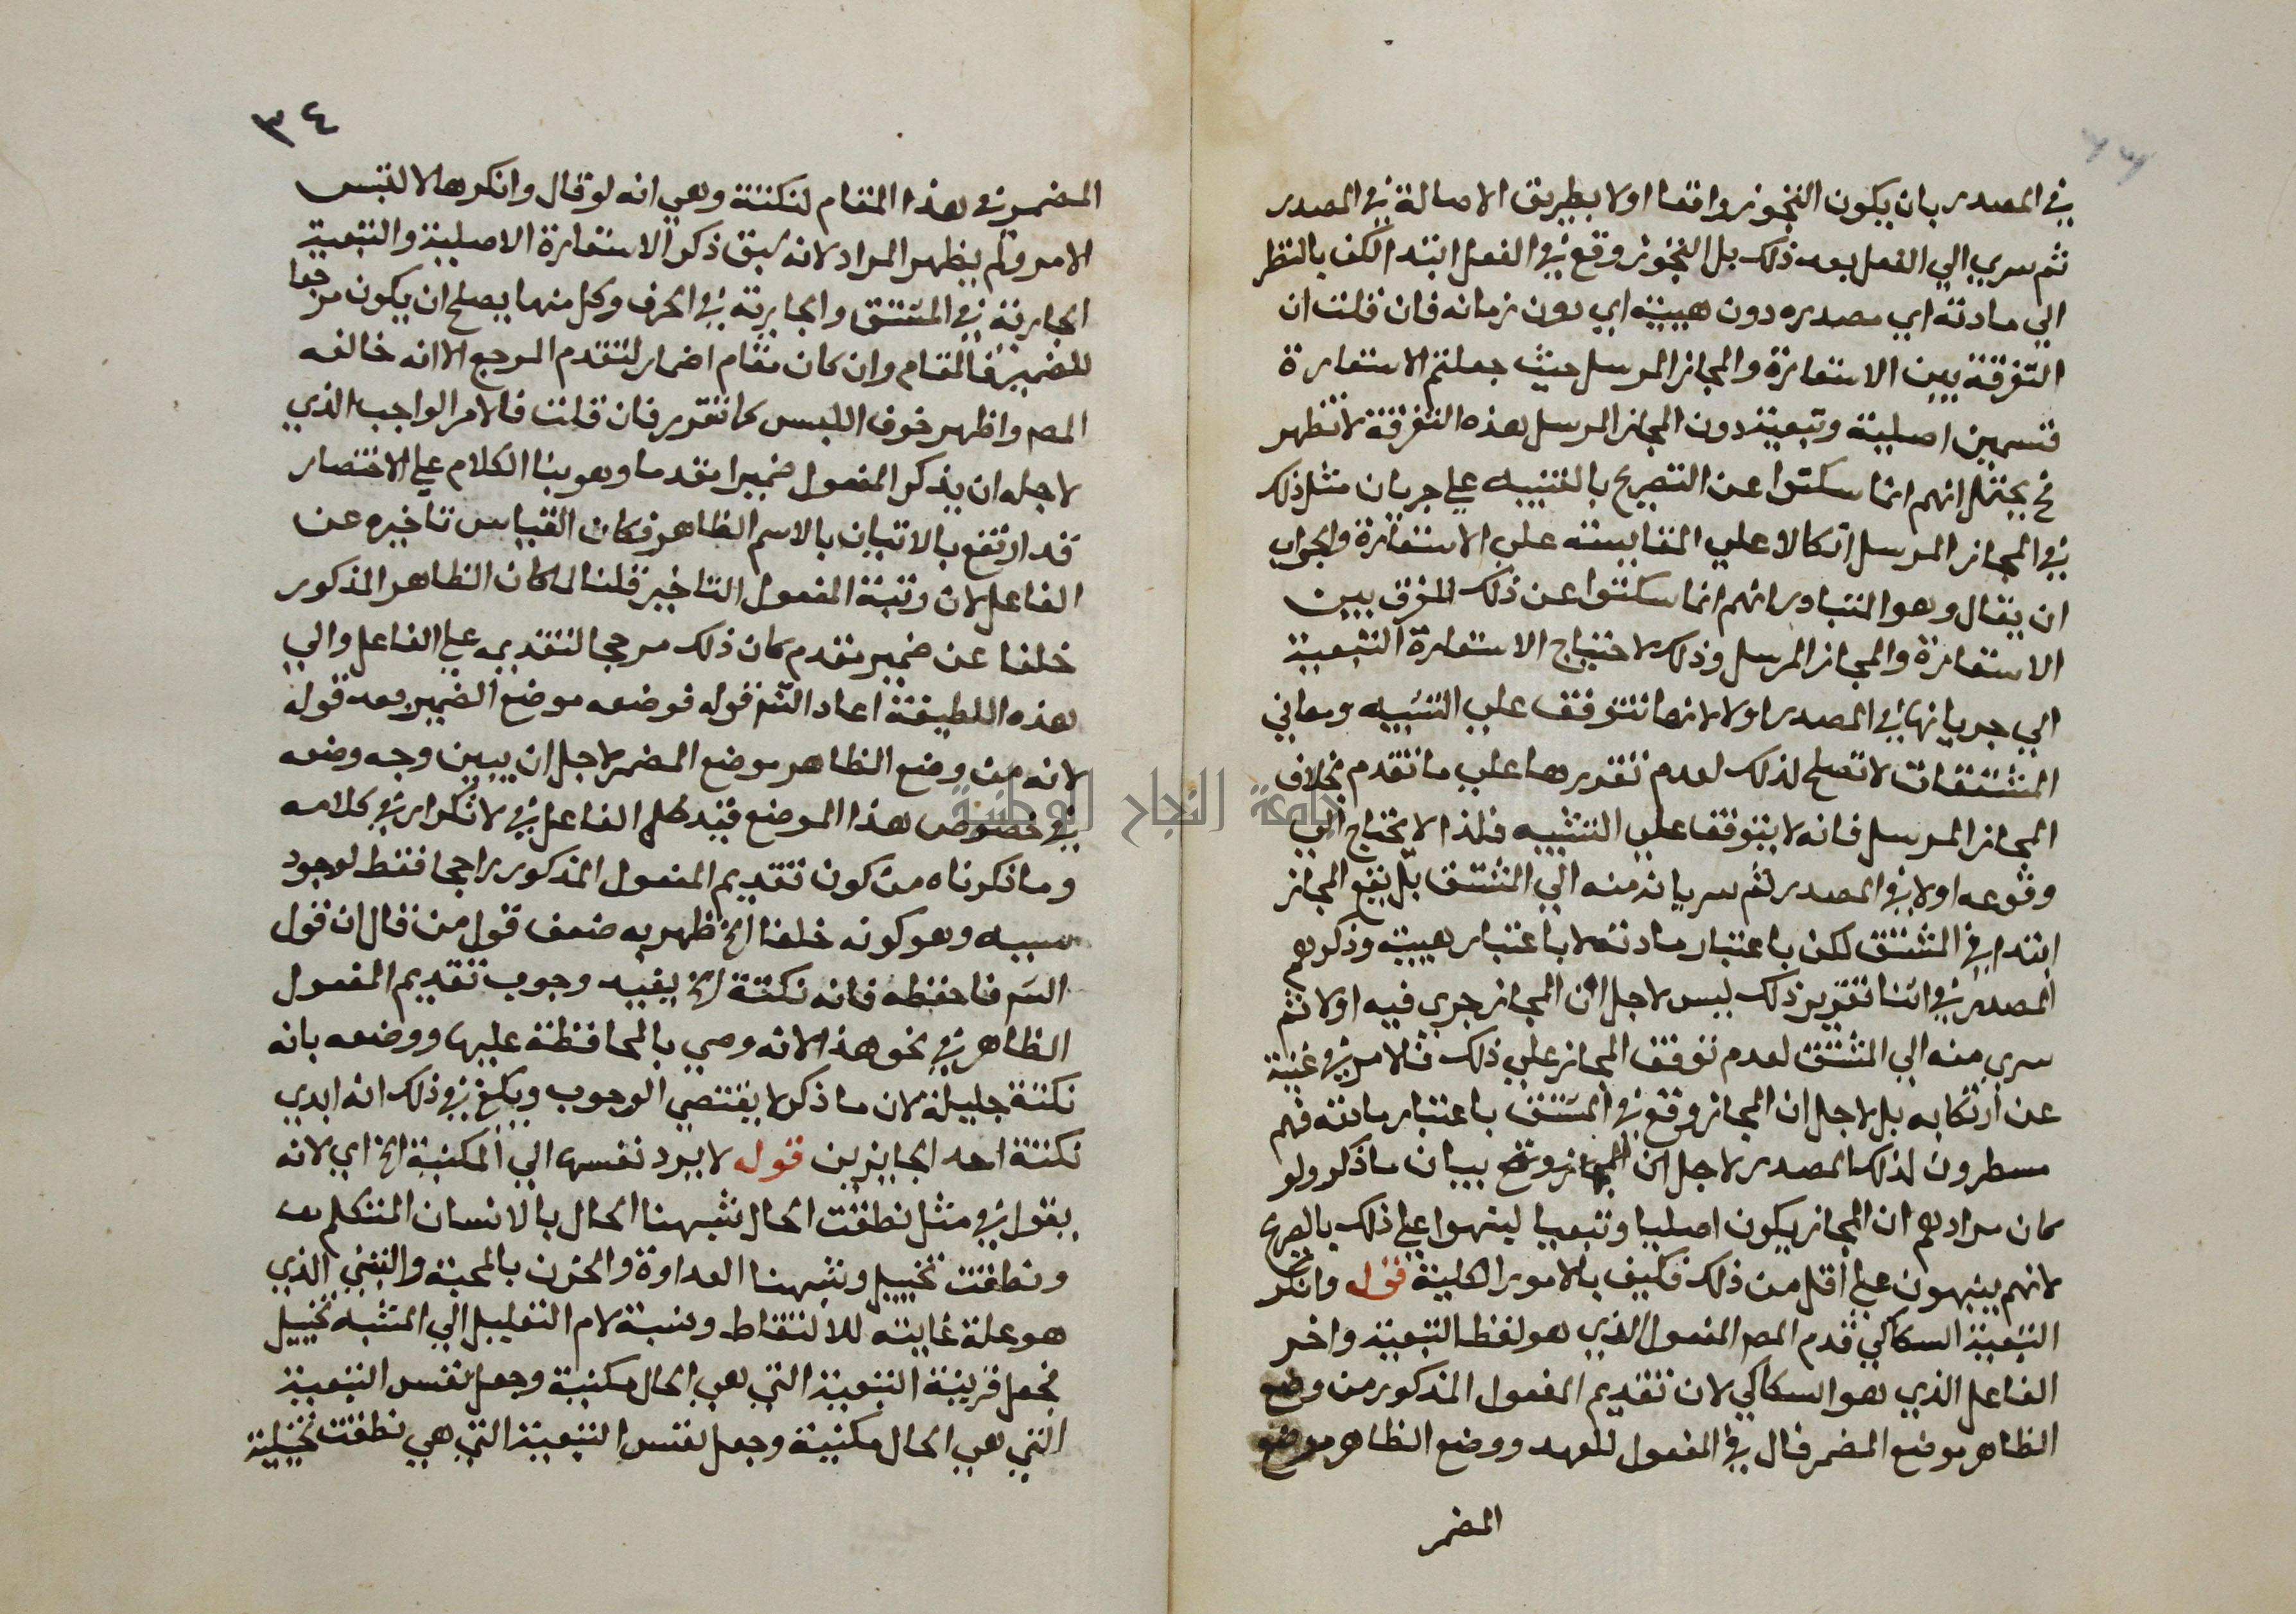 في المصدر بان يكون التجوز واقعا اولا بطريق الاصالة في المصدر
ثم سري الي الفعل بعد ذلك بل التجوز وقع في الفعل ابتدا لكن بالنظر
الي مادته اي مصدره دون هيبته اي دون زمانه فان قلت ان
التفرقة بين الاستعارة والمجاز المرسل حيث جعلتم الاستعارة
قسمين اصلية وتبعية دون المجاز المرسل هذه التفرقة لا تظهر
نعم يحتمل انهم انما سكتوا عن التصريح بالتنبيه علي جريان مثل ذلك
في المجاز المرسل اتكالا علي المقايسة علي الاستعارة والجواب
ان يقال وهو المتبادر انهم انما سكتوا عن ذلك للفرق بين
الاستعارة والمجاز المرسل وذلك لاحتياج الاستعارة التبعية
الي جريانها في المصدر اولا لانها تتوقف علي التشبيه ومعاني
المشتقات لا تصلح لذلك لعدم تقررها علي ما تقدم بخلاف
المجاز المرسل فانه لا يتوقف علي التشبيه فلذا لا يحتاج الي
وقوعه اولا في المصدر ثم سريانه منه الي المشتق بل يقع المجاز
ابتدا في المشتق لكن باعتبار مادته لا باعتبار هيبته وذكرهم
المصدر في اثنا تقرير ذلك ليس لاجل ان المجاز جري فيه اولا ثم
سري منه الي المشتق لعدم توقف المجاز علي ذلك فالامر في غنية
عن ارتكابه بل لاجل ان المجاز وقع في المشتق باعتبار مادته فهم
مسطرون لذلك المصدر لاجل ان المجاز وقع ببيان ما ذكر ولو
كان مرادهم ان المجاز يكون اصليا وتبعيا لينهوا علي ذلك بالصريح
لانهم ينبهون علي اقل من ذلك فكيف بالامور الكلية قوله وانكر
التبعية السكاكي قدم المص المفعول الذي هو لفظ التبعية واخر
الفاعل الذي هو السكاكي لان تقديم المفعول المذكور من وضع
الظاهر موضع المضمر فال في المفعول للعهد ووضع الظاهر موضع
المضمر
٣٤
المضمر في هذا المقام لنكتة وهي انه لو قال وانكرها لالتبس
الامر ولم يظهر المراد لانه سبق ذكر الاستعارة الاصلية والتبعية
الجارية في المشتق والجارية في الحرف وكل منها يصلح ان يكون مرجعا
للضمير فالمقام وان كان مقام اضمار لتقدم المرجع الا انه خالفه
المص واظهر خوف اللبس كما تقرر فان قلت فالامر الواجب الذي
لاجله ان يذكر المفعول ضميرا مقدما وهو بنا الكلام علي الاختصار
قد ارتفع بالاتيان بالاسم الظاهر فكان القياس تاخيره عن
الفاعل لان رتبة المفعول التاخير قلنا لما كان الظاهر المذكور
خلفا عن ضمير مقدم كان ذلك مرجحا لتقديمه علي الفاعل والي
هذه اللطيفة اعاد الشم قوله فوضعه موضع الضمير بعد قوله
لانه من وضع الظاهر موضع المضمر لاجل ان يبين وجه وضعه
في خصوص هذا الموضع قيد كلم الفاعل في لا تكرار في كلامه
وما ذكرناه من كون تقديم المفعول المذكور راجحا فقط لوجود
سببه وهو كونه خلفا الخ ظهر به ضعف قول من قال ان قول
الشم فاحفظه فانه نكتة الخ يفيد وجوب تقديم المفعول
الظاهر في نحو هذا لانه وصي بالمحافظة عليها ووضعه بانه
نكتة جليلة لان ما ذكر لا يقتضي الوجوب ويكفي في ذلك انه ابدي
نكتة احد الجايزين قوله لا يرد نفسها الي المكنية الخ اي لانه
يقول في مثل نطقت الحال شبهنا الحال بالانسان المتكلم
ونطقت تخييل وشبهنا العداوة والحزن بالمحبة والتبني الذي
هو علة غايته للالتقاط ونسبة لام التعليل الي المشبه تخييل
فجعل قرينة التبعية التي هي الحال مكنية وجعل نفس التبعية
التي هي الحال مكنية وجعل نفس التبعية التي هي نطقت تخيلية
جامعة النجاح الوطنية